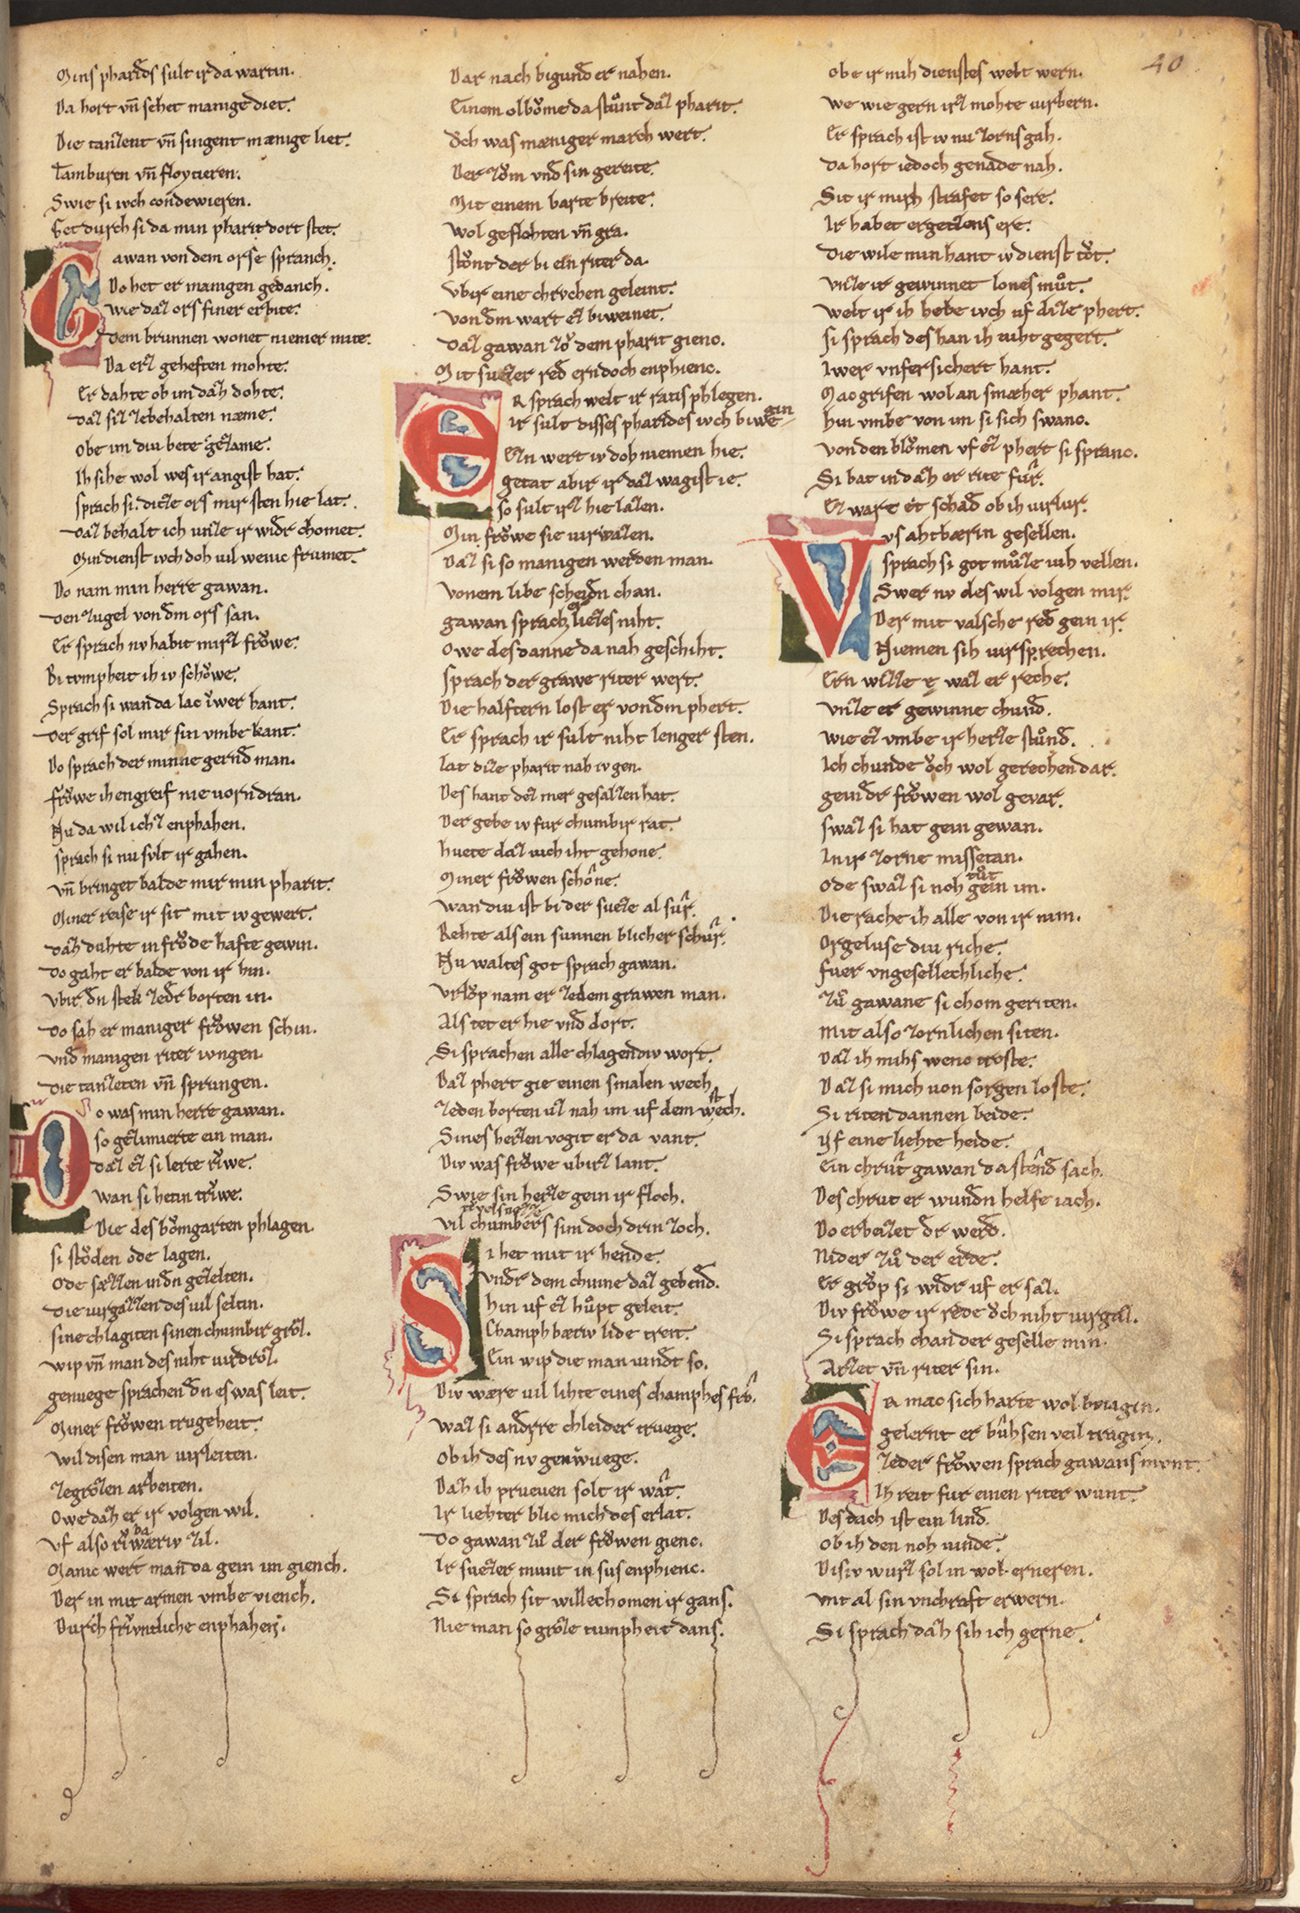 Mins pharides sult ir da wartin.
Da hort vn̄ sehet manige diet.
Die tanzent vn̄ singent mænige liet.
Tamburen vn̄ floytieren.
Swie si ivch condewieren.
Get durch si da min pharit dort stet.
Gawan von dem orse spranch.
Do het er manigen gedanch.
wie daz ors siner erbite.
Dem brunnen wonet niemer mite.
Da erz geheften mohte.
Er dahte ob im dah dohte.
Daz siz ze behalten næme.
Obe im diu bete gezæme.
Ih sihe wol wes ir angist hat.
sprach si. dize ors mir sten hie lat.
Daz behalt ich unze ir widr chomet.
Min dienst ivch doh vil wenic frumet.
Do nam min herre gawan.
Den zugel von dm ors san.
Er sprach nv habit mirz frowe.
Bi tvmpheit ih iv schowe.
Sprach si wan da lac iwer hant.
Der grif sol mir sin vmbekant.
Do sprach der minne gernd man.
frowe ih engreif nie vorn dran.
Nu da wil ichz enphahen.
sprach si nu svlt ir gahen.
vn̄ bringet balde mir min pharit.
Miner reise ir sit mit iv gewert.
Dah duhte in frode hafte gewin.
Do gaht er balde von ir hin.
vbir dn stek zedr borten in.
Do sah er maniger frowen schin.
vnd manigen riter ivngen.
Die tanzeten vn̄ sprungen.
Do was min herre gawan.
so gezimierte ein man.
Daz ez si lerte riwe.
wan si hetin triwe.
Die des bomgarten phlagen.
si stoden ode lagen.
Ode sæzzen indn gezelten.
Die virgazzen des vil seltin.
sine chlagiten sinen chumbir groz.
wip vn̄ man des niht virdroz.
genuege sprachen dn es was leit.
Miner frowen trugeheit.
wil disen man virleiten.
zegrozen arbeiten.
Owe dah er ir volgen wil.
vf also riwbæriv zil.
Manic wert man da gein im giench.
Der in mit armen vmbe viench.
Durch frivntliche enphahen.
Dar nach bigund er nahen.
Einem olbome da stunt daz pharit.
Och was mæniger march wert.
Der zom vnd sin gereite.
Mit einem barte breite.
wol geflohten vn̄ gra.
stont der bi ein riter da.
vbir eine chrvchen geleint.
von dm wart ez biweinet.
Daz gawan zo dem pharit gienc.
Mit suezer red ern doch enphienc.
Er sprach welt ir ratis phlegen.
Ir sult disses pharides ivch biwegin
Ezn wert iv doh niemen hie.
getat abir ir daz wagist ie.
so sult irz hie lazen.
Min frowe sie virwazen.
Daz si so manigen werden man.
vonem libe scheidn chan.
gawan sprach er liezes niht.
Owe des danne da nah geschiht.
sprach der grawe riter wert.
Die halftern lost er von dm phert.
Er sprach ir sult niht lenger sten.
lat dize pharit nah iv gen.
Des hant dez mer gesalzen hat.
Der gebe iv fur chumbir rat.
huete daz iuch iht gehone.
Miner frowen schone.
wan diu ist bi der sueze al sur.
Rehte als ein sunnen blicher schur.
Nu waltes got sprach gawan.
vrlop nam er zedem grawen man.
Als tet er hie vnd dort.
Si sprachen alle chlagendiv wort.
Daz phert gie einen smalen wech
zeden borten vz nah im uf dem stech.
Sines herzen vogit er da vant.
Div was frowe ubirz lant.
Swie sin herze gein ir floch.
vil chumbers sim doch drin zoch.
Si het mit ir hende.
vndr dem chinne daz gebend.
hin uf ez hupt geleit.
Champh bæriv lide treit.
Ein wip die man uindt so.
Div wære vil lihte eines champhes fro.
waz si andrre chleider truege.
Ob ih des nv genuege.
Dah ih prueuen solt ir wat.
Ir liehter blic mich des erlat.
Do gawan zu der frowen gienc.
Ir suezer munt in sus enphienc.
Si sprach sit willechomen ir gans.
Nie man so groze tumpheit dans.
40
obe ir mih dienstes welt wern.
we wie gern irz mohte virbern.
Er sprach ist iv nu zorns gah.
da hort iedoch genade nah.
Sit ir mich strafet so sere.
Ir habet ergetzens ere.
Die wile min hant iv dienst tot.
vnze ir gewinnet lones mut.
welt ir ih hebe ivch uf dize phert.
si sprach des han ih niht gegert.
Iwer vnfersichert hant.
Mac grifen wol an smæher phant.
hin vmbe von im si sich swanc.
von den blomen vf ez phert si spranc.
Si bat in dah er rite fur.
Ez wart et schad ob ih virlur.
Vs ahtbærin gesellen.
sprach si got muze iuh vellen.
Swer nv des wil volgen mir.
Der mit valsche red gein ir.
Niemen sih virsprechen.
Ern wizze e waz er reche.
vnze er gewinne chund.
wie ez vmbe ir herze stund.
Ich chunde och wol gerechen dar.
gein dr frowen wol gevar.
swaz si hat gein gewan.
In ir zorne missetan.
ode swaz si noh tut gein im.
Die rache ih alle von ir nim.
Orgeluse diu riche.
fuer vngesellechliche.
zu gawane si chom geriten.
Mit also zornlichen siten.
Daz ih mihs wenc troste.
Daz si mich von sorgen loste.
Si riten dannen beide.
vf eine liehte heide.
Ein chrut gawan da stend sach.
Des chrut er wundn helfe iach.
Do erbeizet dr werd.
Nider zu der erde.
Er grop si widr uf er saz.
Div frowe ir rede och niht virgaz.
Si sprach chan der geselle min.
Arzet vn̄ riter sin.
Er mac sich harte wol beiagin.
gelernt er buhsen veil tragin.
zeder frowen sprach gawans mvnt.
Ih reit fur einen riter wunt.
Des dach ist ein lind.
Ob ih den noh uinde.
Disiv wurz sol in wol erneren.
vnt al sin vnchraft erwern.
Si sprach dah sih ich gerne.